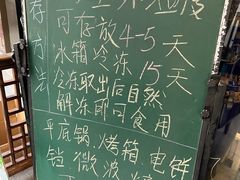 可存放4-5天
冰箱冷冻15天
冷冻取出后自然
解冻即可食用
存方法
平底锅,烤箱,电饼
铛,微波